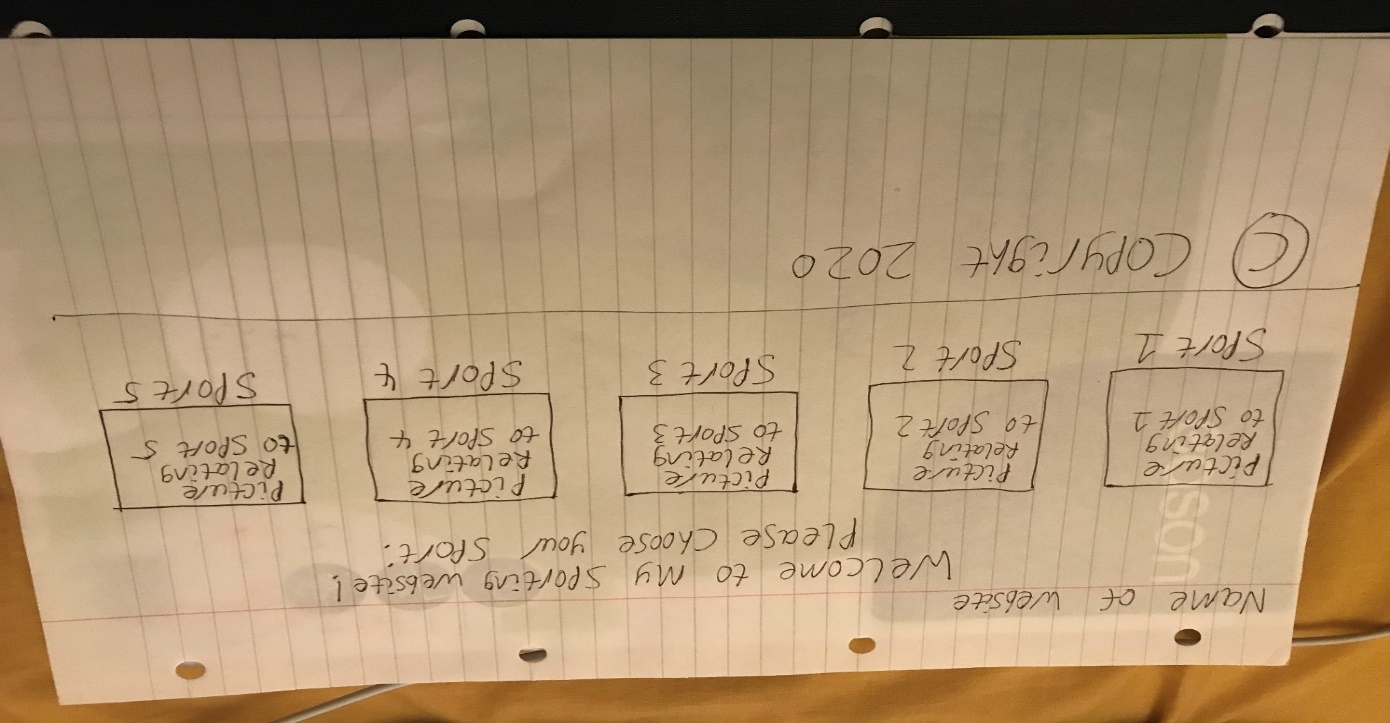 Name of website
Welcome to my sporting website!
Please choose your sport:
Picture
Relating
to Sport 1
Sport 1
Picture
Relating
to Sport 2
Sport 2
Picture
Relating
to Sport 3
Sport 3
Picture
Relating
to Sport 4
Sport 4
Picture
Relating
to Sport 5
Sport 5
© Copyright 2020
son